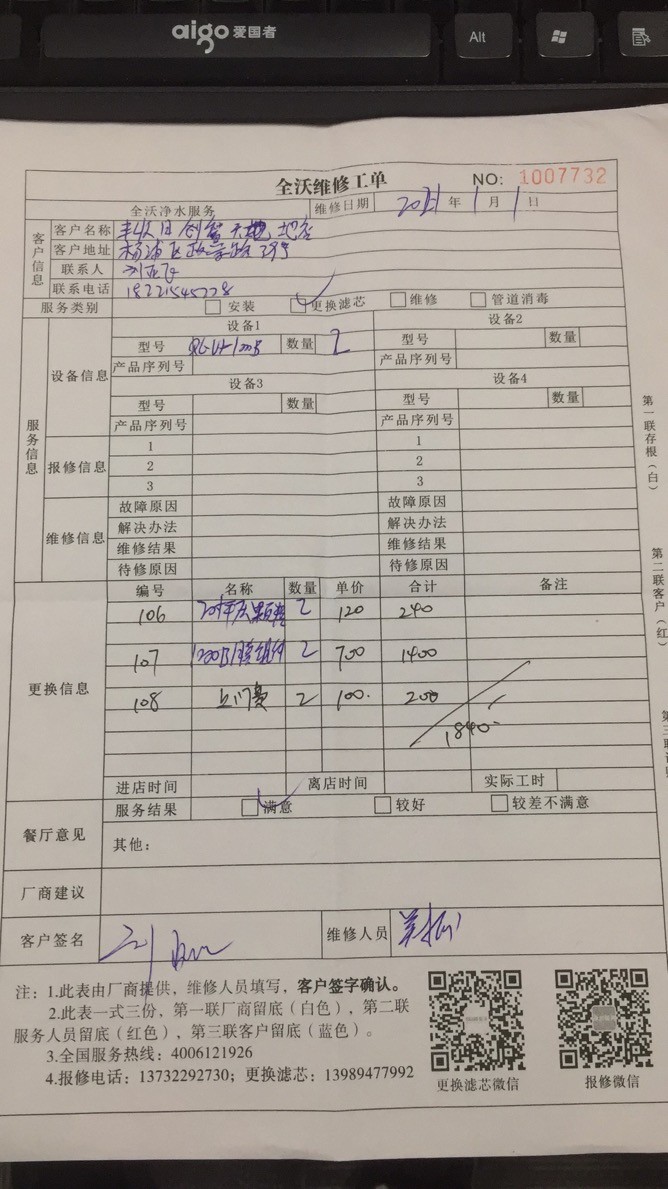 aigo 爱国者
Alt
全沃维修工单
NO: 1007732
全沃净水服务 维修日期 2021 年 1 月 1 日
客户信息
客户名称 丰收日创智天地 地店
客户地址 杨浦区政学路
联系人 刘亚飞
联系电话 18221545778
服务类别 安装 更换滤芯 维修 管道消毒
服务信息
设备信息
设备1 设备2
型号 数量 2 型号 数量
产品序列号 产品序列号
设备3 设备4
型号 数量 型号 数量
产品序列号 产品序列号
报修信息
1 1
2 2
3 3
维修信息
故障原因 故障原因
解决办法 解决办法
维修结果 维修结果
待修原因 待修原因
更换信息
编号 名称 数量 单价 合计 备注
106 2 120 240
107 1200B膜组件 2 700 1400
108 上门费 2 100. 200
1840
进店时间 离店时间 实际工时
餐厅意见
服务结果 满意 较好 较差不满意
其他：
厂商建议
客户签名 维修人员
注：1.此表由厂商提供，维修人员填写，客户签字确认。
2.此表一式三份，第一联厂商留底（白色），第二联
服务人员留底（红色），第三联客户留底（蓝色）。
3.全国服务热线：4006121926
4.报修电话：13732292730；更换滤芯：13989477992
更换滤芯微信
报修微信
第一联存根（白）
第二联客户（红）